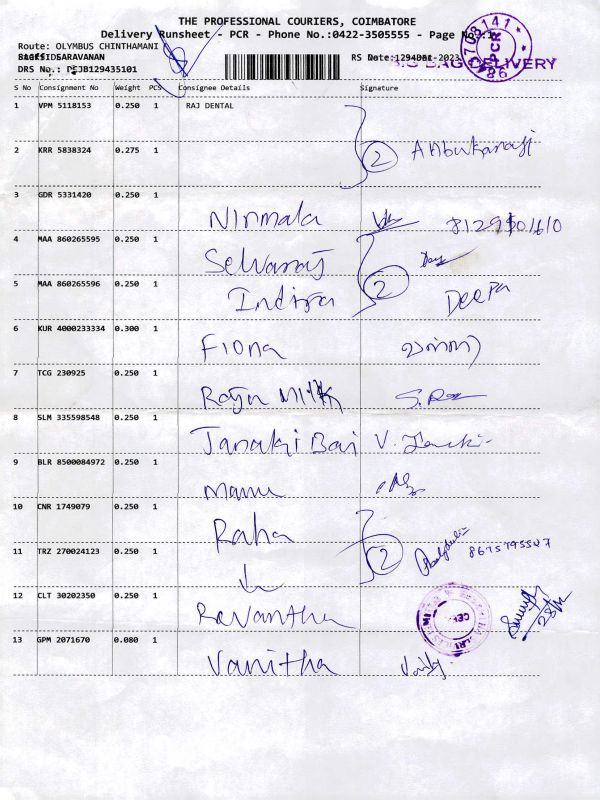 THE PROFESSIONAL COURIERS, COIMBATORE
Delivery Runsheet - PCR - Phone No.:0422-3505555 - Page No.:1
Route: OLYMBUS CHINTHAMANI
SARAVANAN
RS Date:
-2023
BAG DELIVERY
DRS No.: PCJB129435101
PCR
S No Consignment No Weight PCS Consignee Details Signature
1 VPM 5118153 0.250 1 RAJ DENTAL
2 KRR 5838324 0.275 1 2 Anbukanaji
3 GDR 5331420 0.250 1 Nirmala
4 MAA 860265595 0.250 1 Selvaraj
5 MAA 860265596 0.250 1 Indira 2 Deepa
6 KUR 4000233334 0.300 1 Fiona
7 TCG 230925 0.250 1 Raja Milk S.
8 SLM 335598548 0.250 1 Janaki Bai V.
9 BLR 8500084972 0.250 1 Manu
10 CNR 1749079 0.250 1 Raha
11 TRZ 270024123 0.250 1 2 8675795547
12 CLT 30202350 0.250 1 Revantha
13 GPM 2071670 0.080 1 Vanitha